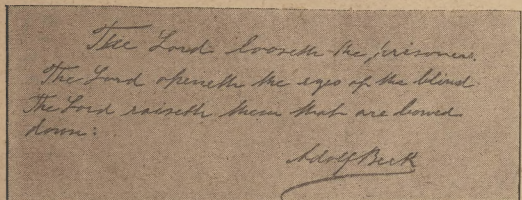 The Lord looseth the prisoners.
The Lord openeth the eyes of the blind
The Lord raiseth them that are bowed
down:
Adolf Beck